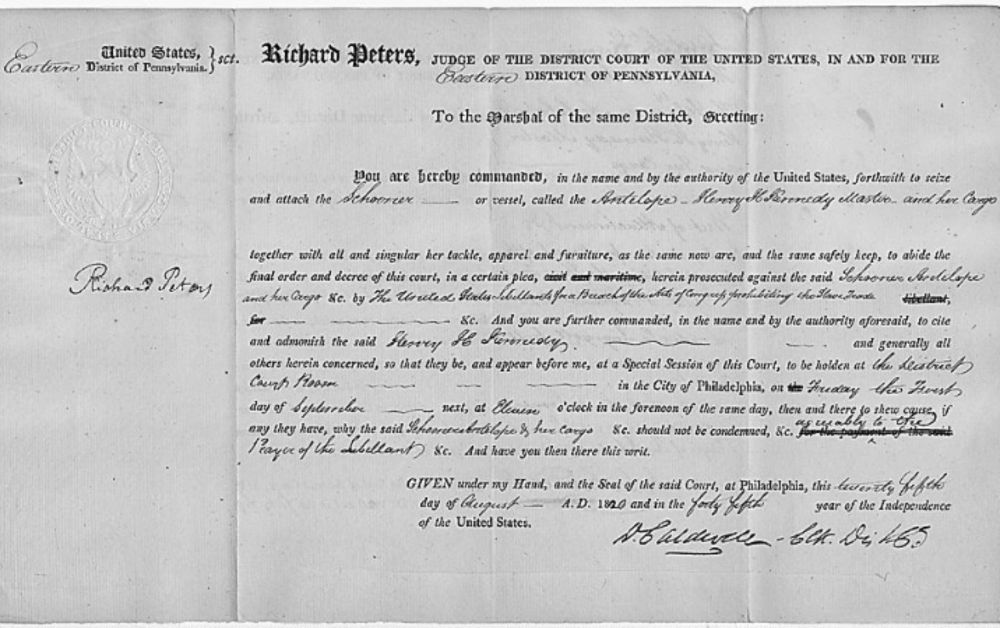 United States,
Eastern District of Pennsylvania. } sct.
Richard Peters, JUDGE OF THE DISTRICT COURT OF THE UNITED STATES, IN AND FOR THE
Eastern DISTRICT OF PENNSYLVANIA,
To the Marshal of the same District, Greeting:
You are hereby commanded, in the name and by the authority of the United States, forthwith to seize
and attach the Schooner or vessel, called the Antelope - Henry H Kennedy Master - and her Cargo
together with all and singular her tackle, apparel and furniture, as the same now are, and the same safely keep, to abide the
final order and decree of this court, in a certain plea, civil and maritime, herein prosecuted against the said Schooner Antelope
and her Cargo &c. by The United States Libellants for a Breach of the Acts of Congress prohibiting the Slave Trade libellant,
for &c. And you are further commanded, in the name and by the authority aforesaid, to cite
and admonish the said Henry H Kennedy and generally all
others herein concerned, so that they be, and appear before me, at a Special Session of this Court, to be holden at the District
Court Room in the City of Philadelphia, on the Friday the First
day of September next, at Eleven o'clock in the forenoon of the same day, then and there to shew cause, if
any they have, why the said Schooner Antelope & her Cargo &c. should not be condemned, &c. agreeably to the for the payment of the said
Prayer of the Libellant &c. And have you then there this writ.
GIVEN under my Hand, and the Seal of the said Court, at Philadelphia, this twenty fifth
day of August A. D. 1820 and in the forty fifth year of the Independence
of the United States.
D. Caldwell - Clk. Dist Ct
Richard Peters